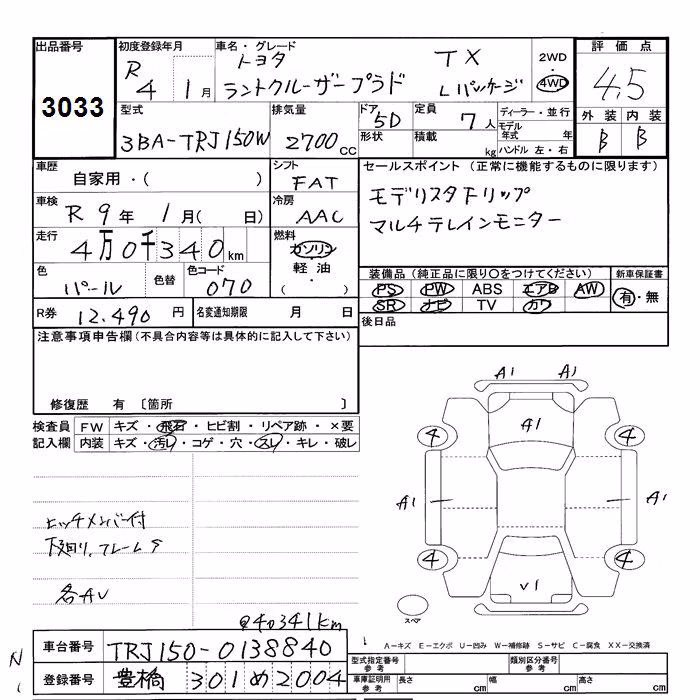 出品番号
3033
初度登録年月
R 4 1月
車名・グレード
トヨタ TX
ラントクルーザープラド Lパッケージ
2WD
4WD
評価点
4.5
外装 内装
B B
型式
3BA-TRJ150W
排気量
2700cc
ドア
5D
形状
定員
7人
積載
kg
ディーラー・並行
モデル年式 年
ハンドル 左・右
車歴
自家用・( )
シフト
FAT
セールスポイント (正常に機能するものに限ります)
モデリスタドリップ
マルチテレインモニター
車検
R 9年 1月( 日)
冷房
AAC
走行
4万0千340km
燃料
ガソリン
・
軽油
・
( )
色
パール
色替
色コード
070
装備品 (純正品に限り○をつけてください)
PS PW ABS エアB AW
SR ナビ TV カワ
新車保証書
有・無
R券 12,490円
名変通知期限 月 日
後日品
注意事項申告欄(不具合内容等は具体的に記入して下さい)
修復歴 有 〔箇所 〕
検査員記入欄
FW キズ・飛石・ヒビ割・リペア跡・×要
内装 キズ・汚レ・コゲ・穴・スレ・キレ・破レ
ヒッチメンバー付
下回り、フレームサ
各AU
@40341km
A1 A1
A1
4 4
A1 A1
4 4
V1
スペア
A-キズ E-エクボ U-凹み W-補修跡 S-サビ C-腐食 XX-交換済
車台番号 TRJ150-0138840
登録番号 豊橋 301め2004
型式指定番号 参考
類別区分番号 参考
車庫証明用 参考
長さ cm
幅 cm
高さ cm